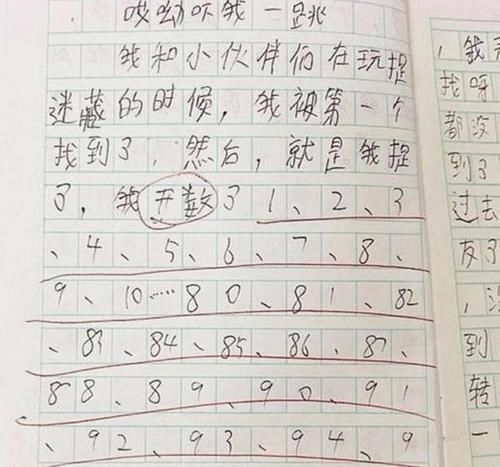 哎呦吓我一跳
我和小伙伴们在玩捉
迷藏的时候，我被第一个
找到了，然后，就是我捉
了，我开数了1、2、3
、4、5、6、7、8、
9、10……80、81、82
、83、84、85、86、87、
88、89、90、91
、92、93、94、9
，我
找呀
都没
到了
过去
友了
，
到
转
一